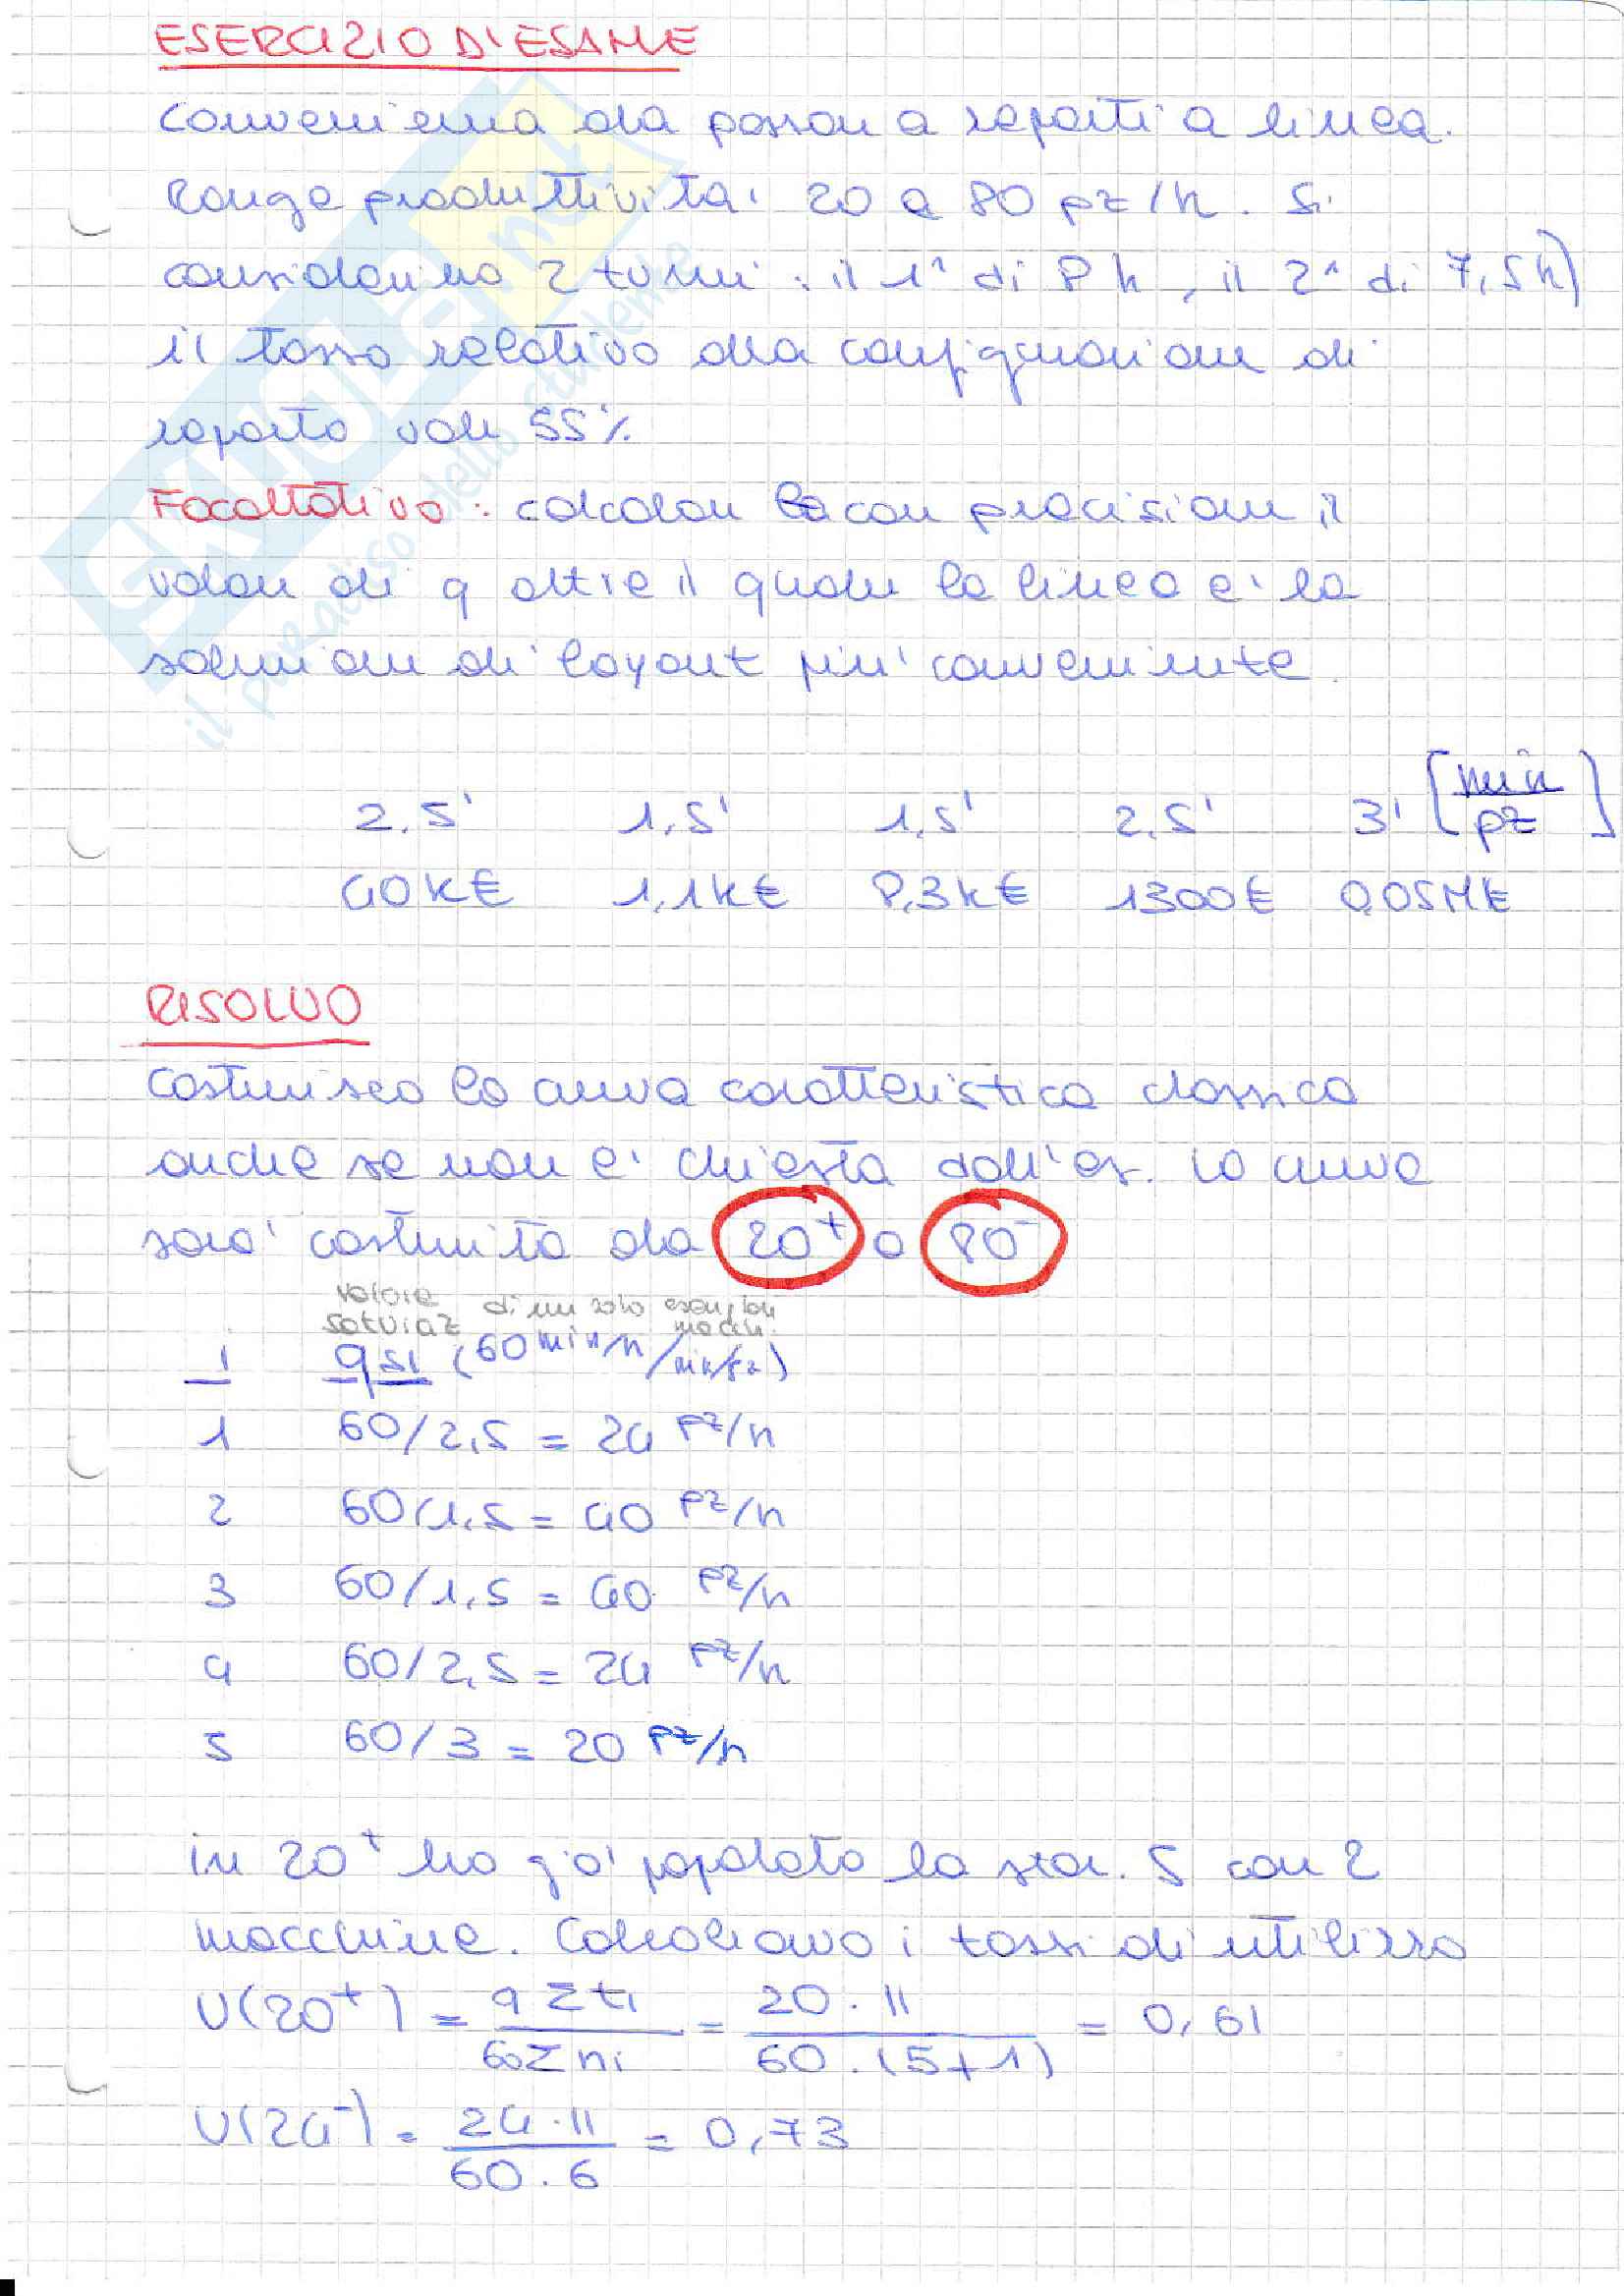 ESERCIZIO D'ESAME
Convenienza da passare a reparti a linea.
Range produttività: 20 a 80 pz/h. Si
considerino 2 turni: il 1° di 8h, il 2° di 7,5h)
il tasso relativo alla configurazione di
reparto vale 55%
Facoltativo: calcolare con precisione il
valore di q oltre il quale la linea e' la
soluzione di layout piu' conveniente.
2.5' 1,5' 1,5' 2,5' 3' [min/pz]
40k€ 1,1k€ 8,3k€ 1300€ 0,05M€
RISOLVO
Costruisco la curva caratteristica classica
anche se non e' chiesta dall'es. la curva
sara' costruita da 20⁺ a 80⁻
valore di un solo esemplare
saturaz macch.
i qsi (60 min/h / min/pz)
1 60/2,5 = 24 pz/h
2 60/1,5 = 40 pz/h
3 60/1,5 = 40 pz/h
4 60/2,5 = 24 pz/h
5 60/3 = 20 pz/h
in 20⁺ ho gia' popolato la staz. 5 con 2
macchine. Calcoliamo i tassi di utilizzo
U(20⁺) = qΣti / 60Σni = 20·11 / 60·(5+1) = 0,61
U(24⁻) = 24·11 / 60·6 = 0,73
SKUOLA.net
il paradiso dello studente